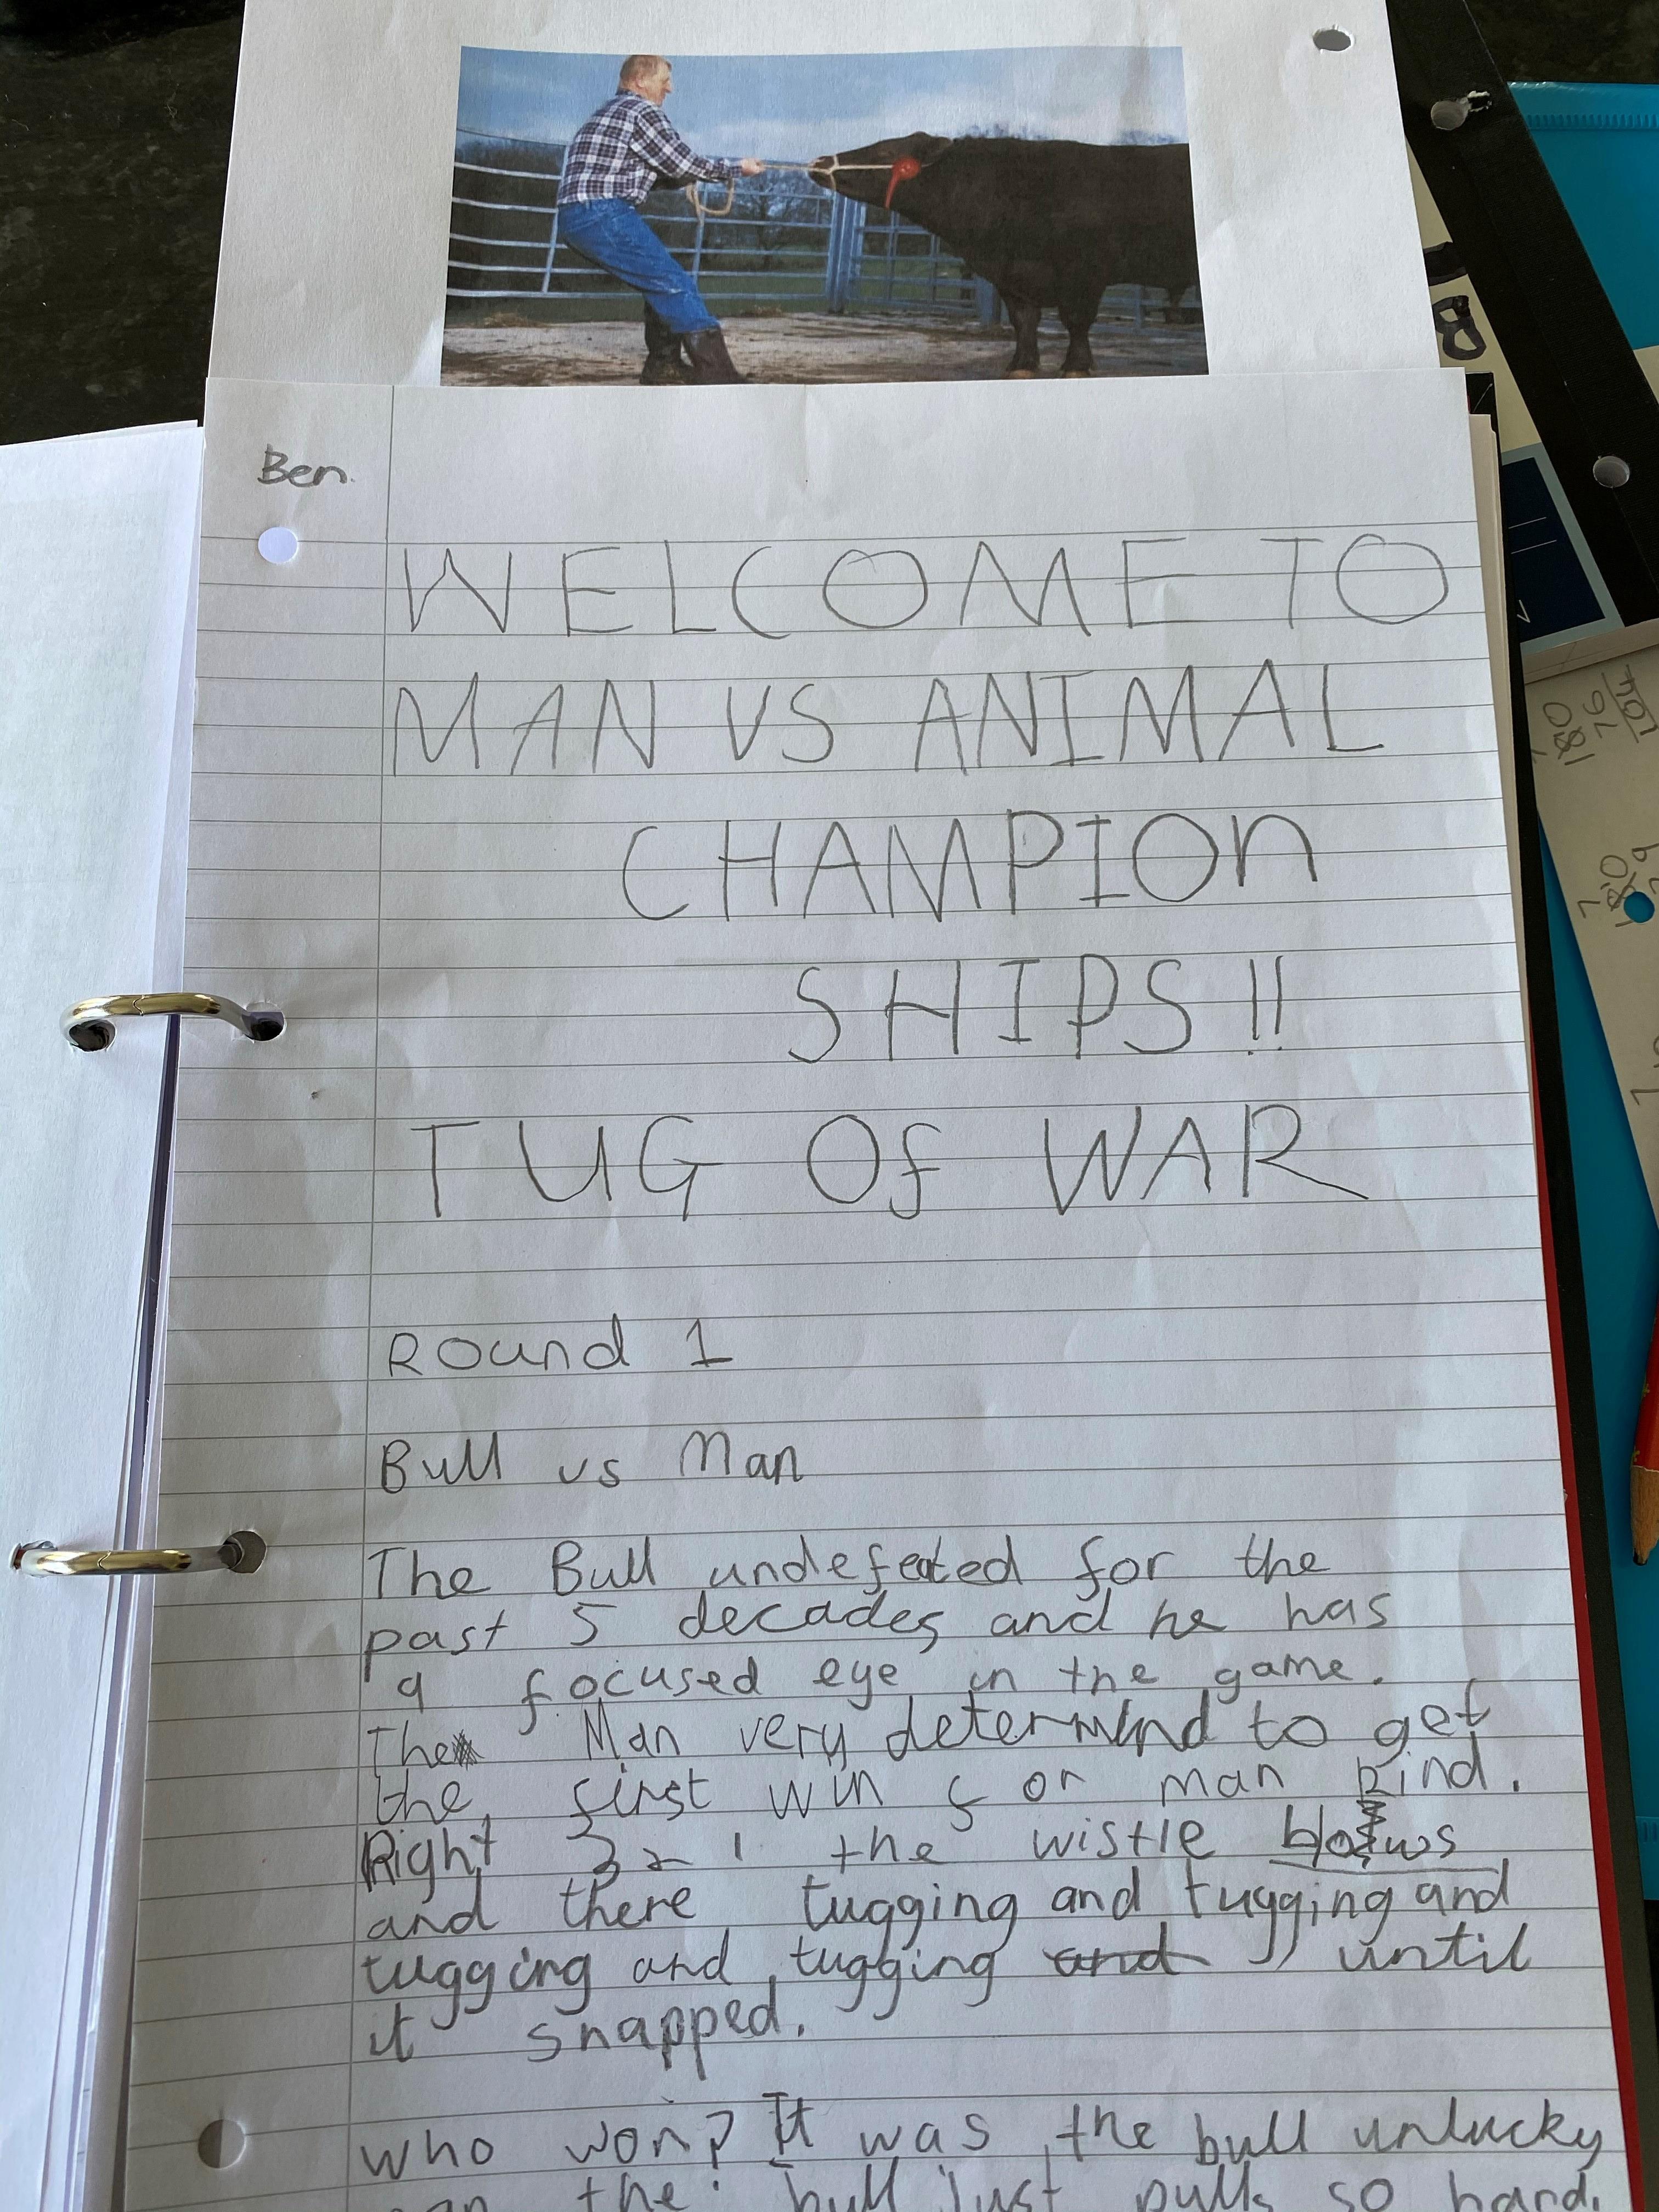 Ben.
WELCOME TO
MAN VS ANIMAL
CHAMPION
SHIPS!!
TUG Of WAR
Round 1
Bull vs Man
The Bull undefeated for the
past 5 decades and he has
a focused eye in the game.
The Man very determind to get
the first win for man kind.
Right 3 2 1 the wistle blows
and there tugging and tugging and
tugging and tugging and until
it snapped.
who won? It was the bull unlucky
man the bull just pulls so hard.
B
180
76
104
180